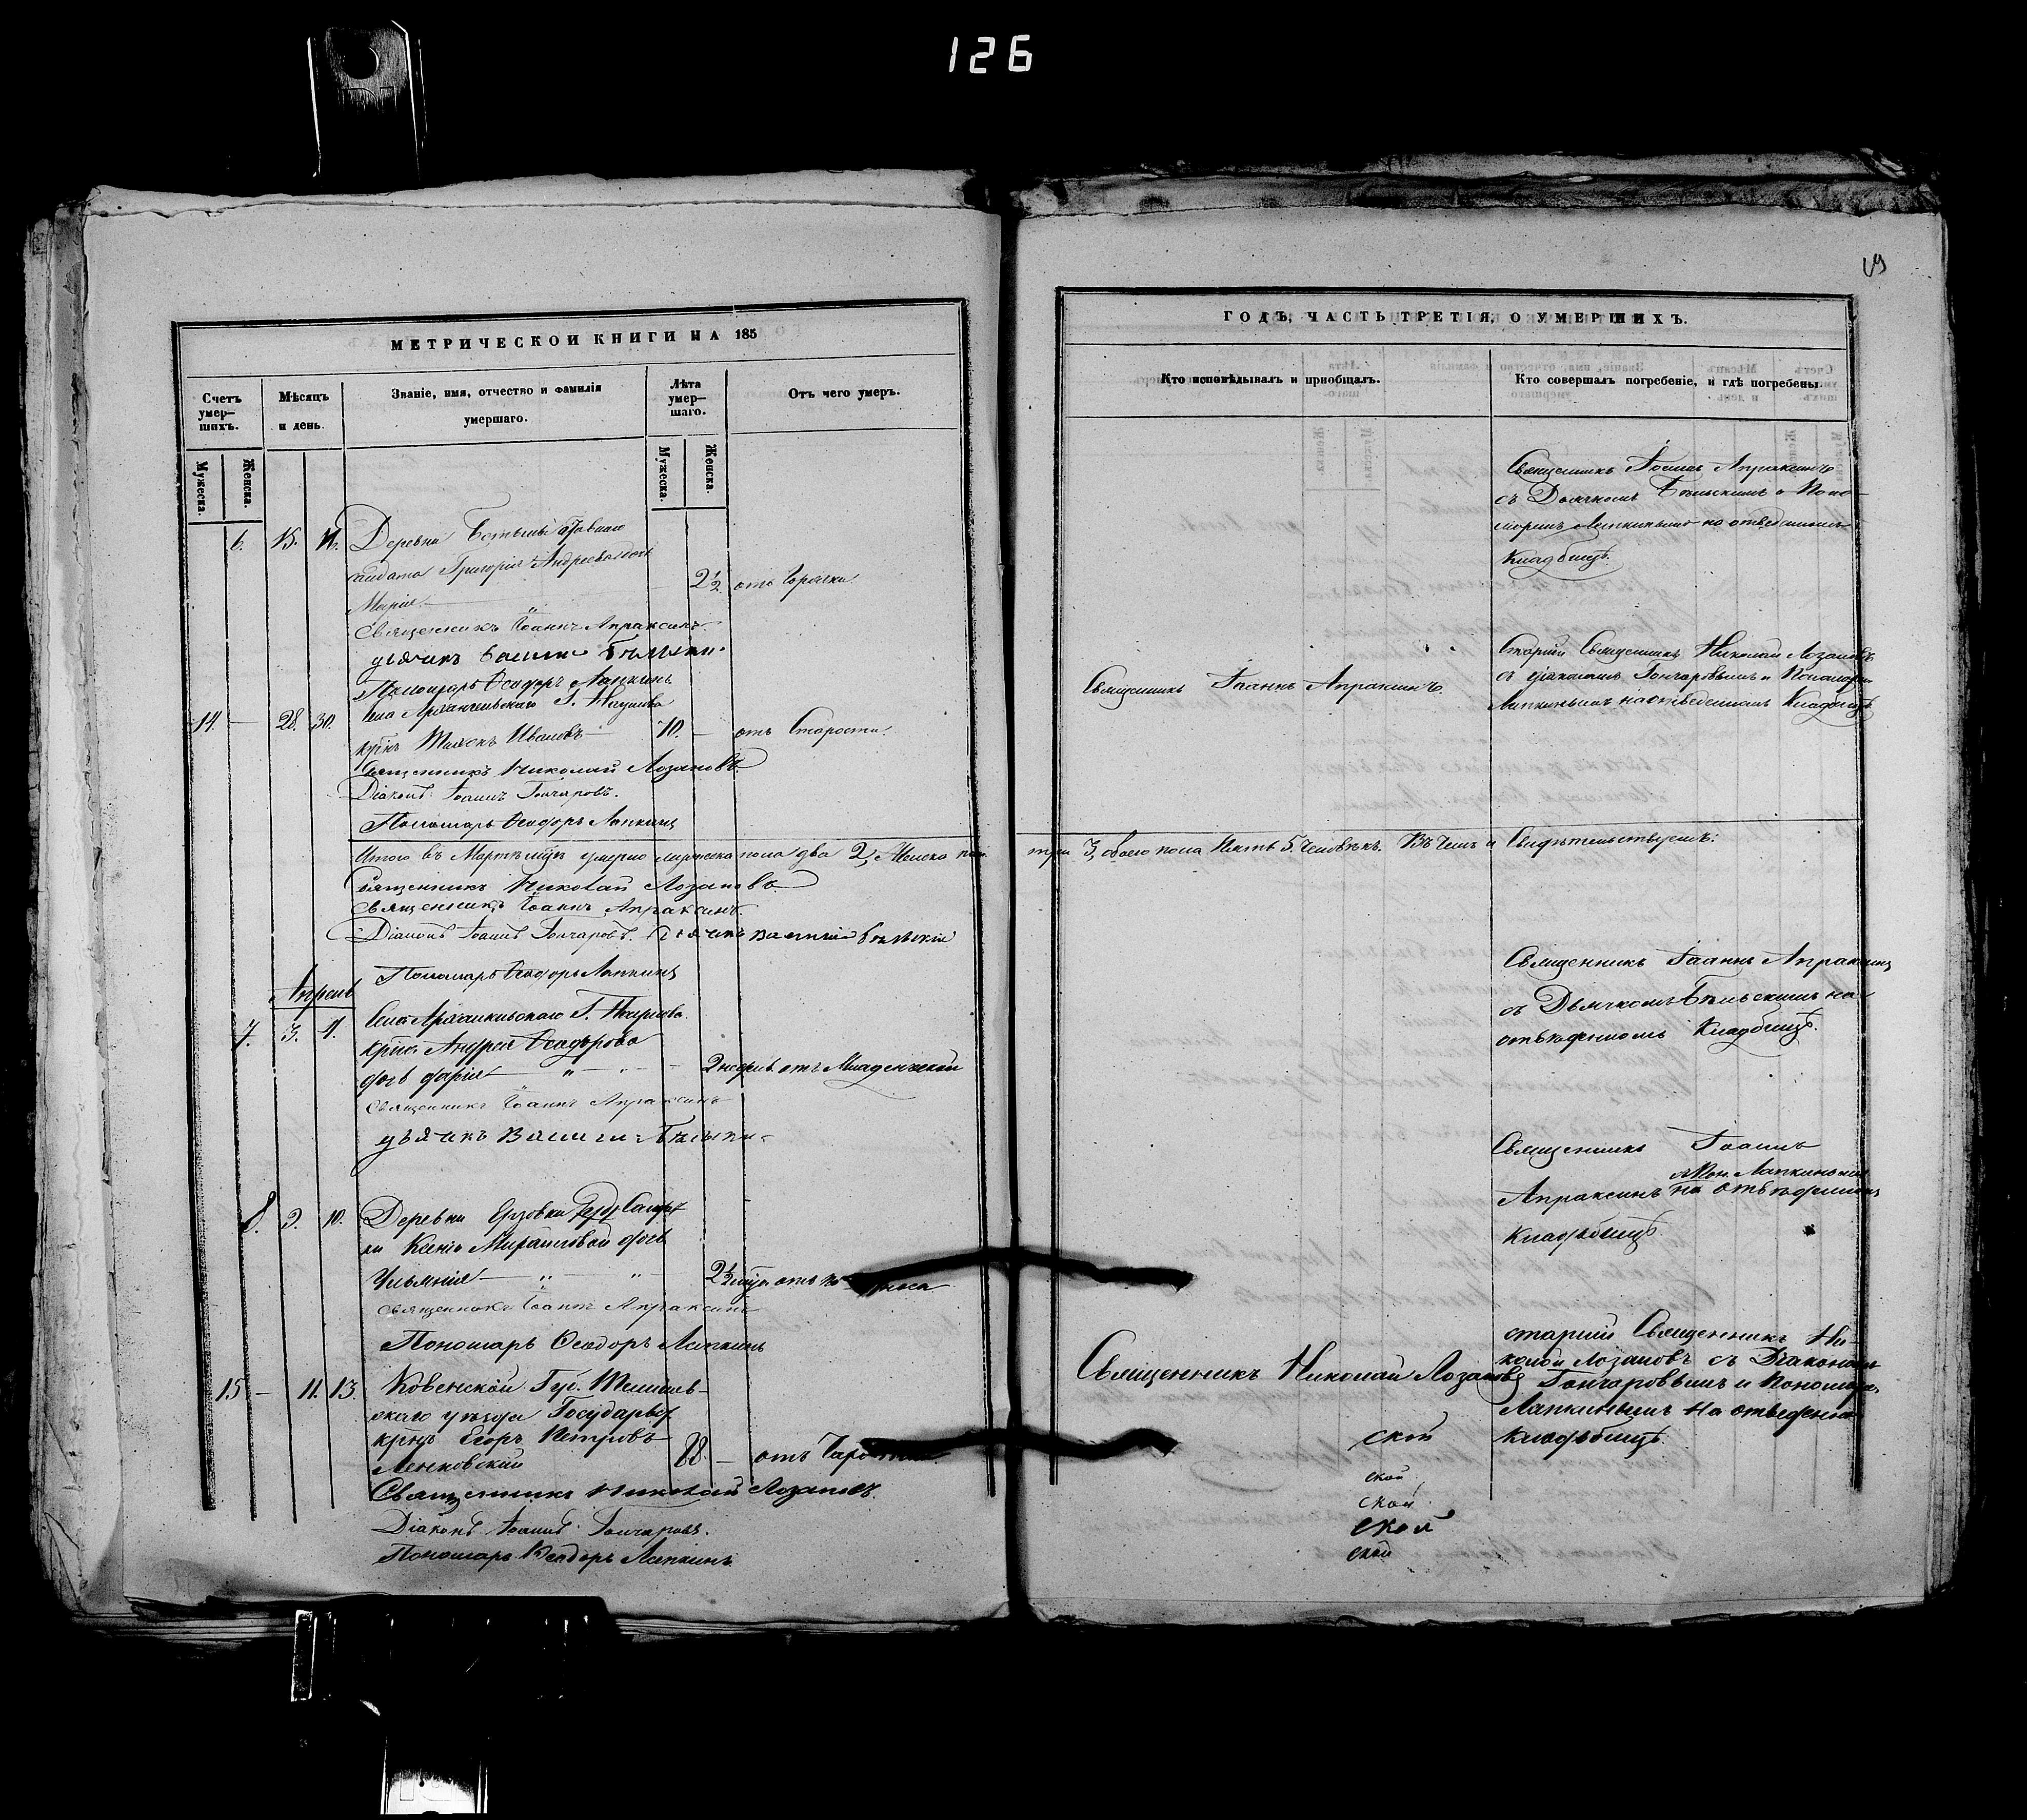 126
МЕТРИЧЕСКОЙ КНИГИ НА 185
Счетъ умер—шихъ.
Мѣсяцъ и день.
Званіе, имя, отчество и фамилія умершаго.
Лѣта умер—шаго.
Отъ чего умеръ.
Мужеска.
Женска.
Мужеска.
Женска.
6. 15. Деревни
Григорія Андреева дочь
Марія 2½ отъ Горячки
Священникъ Іоаннъ Апраксинъ
Дьячикъ
Пономарь Ѳеодоръ Лапкинъ
Села Архангельскаго Г. Наумова
14. — 28. 30. Ивановъ 70. — отъ Старости.
Священникъ Николай Лозановъ
Діаконъ Іоаннъ Гончаровъ.
Пономарь Ѳеодоръ Лапкинъ
Итого въ Мартѣ мцѣ умерло мужеска пола два 2, Женска пол.
Священникъ Николай Лозановъ
Священникъ Іоаннъ Апраксинъ
Діаконъ Іоаннъ Гончаровъ. Дьячикъ Василій Бѣльскій
Пономарь Ѳеодоръ Лапкинъ
Апрель
7. 3. 4. Села Архангельскаго Г. Наумова
Андрея Ѳеодорова
дочь Дарія 2 недѣль отъ Младенческой
Священникъ Іоаннъ Апраксинъ
Дьячикъ Василій
8. 9. 10. Деревни Ерзовки
Ксеніи Михайловой дочь
Ульянія 2½ отъ
Священникъ Іоаннъ Апраксинъ
Пономарь Ѳеодоръ Лапкинъ
15 — 11. 13. Ковенской Губ.
скаго уѣзда Государ
крнъ Егоръ Петровъ
88 — отъ
Священникъ Николай Лозановъ.
Діаконъ Іоаннъ Гончаровъ.
Пономарь Ѳеодоръ Лапкинъ
ГОДЪ, ЧАСТЬ ТРЕТІЯ, О УМЕРШИХЪ.
Кто исповѣдывалъ и пріобщалъ.
Кто совершалъ погребеніе, и гдѣ погребены.
Священникъ Іоаннъ Апраксинъ
съ Дьячкомъ Бѣльскимъ и Поно—
маремъ Лапкинымъ на отведенномъ
Кладбищѣ.
Священникъ Іоаннъ Апраксинъ
Старшій Священникъ Николай Лозановъ
съ Діакономъ Гончаровымъ и Пономаремъ
Лапкинымъ на отведенномъ Кладбищѣ
три 3, обоего пола пять 5. человѣкъ. Въ чемъ и Свидѣтельствуемъ:
Священникъ Іоаннъ Апраксинъ
съ Дьячкомъ Бѣльскимъ на
отведенномъ Кладбищѣ.
Священникъ Іоаннъ
Апраксинъ на отведенномъ
Кладбищѣ.
Священникъ Николай Лозановъ
старшій Священникъ Ни-
колай Лозановъ съ Діакономъ
Гончаровымъ и Пономаремъ
Лапкинымъ на отведенномъ
Кладбищѣ.
ской
ской
ской
ской
ской